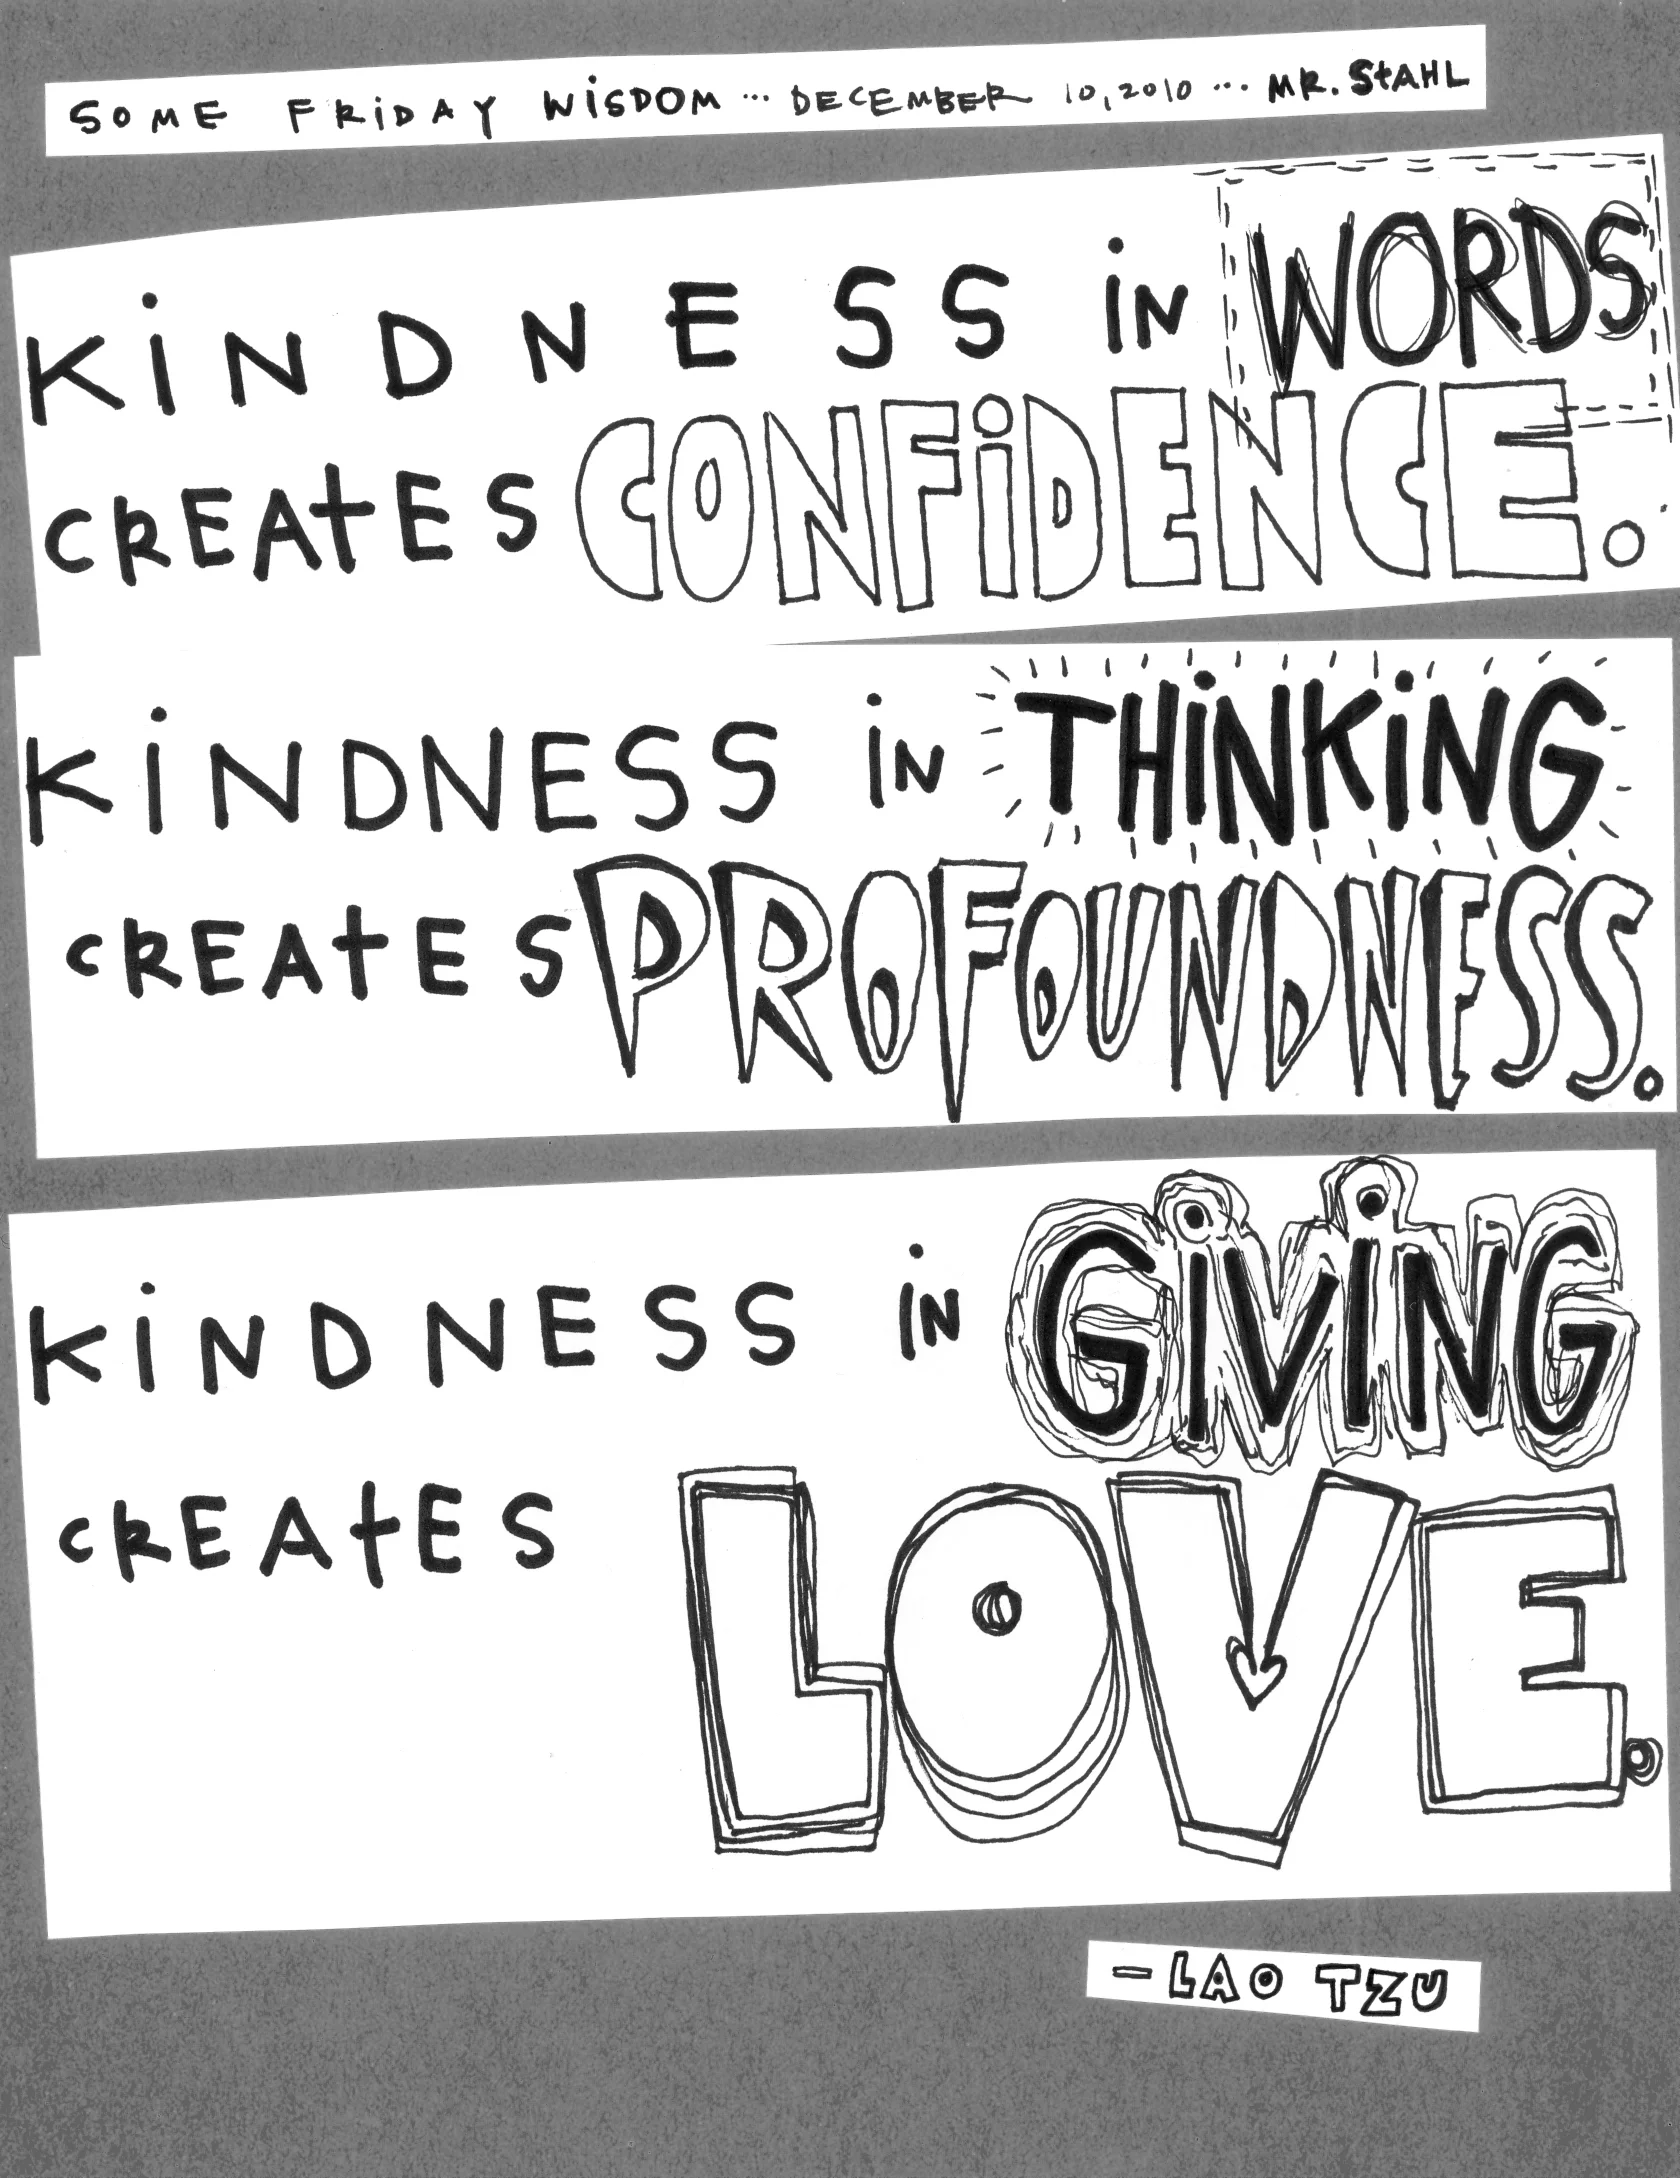 SOME FRiDAY WiSDOM ... DECEMBER 10, 2010 ... MR. StAHL
KiNDNESS iN WORDS
CREAtES CONFiDENCE.
KiNDNESS iN THiNKiNG
CREAtES PROFOUNDNESS.
KiNDNESS iN GiViNG
CREAtES LOVE.
- LAO TZU